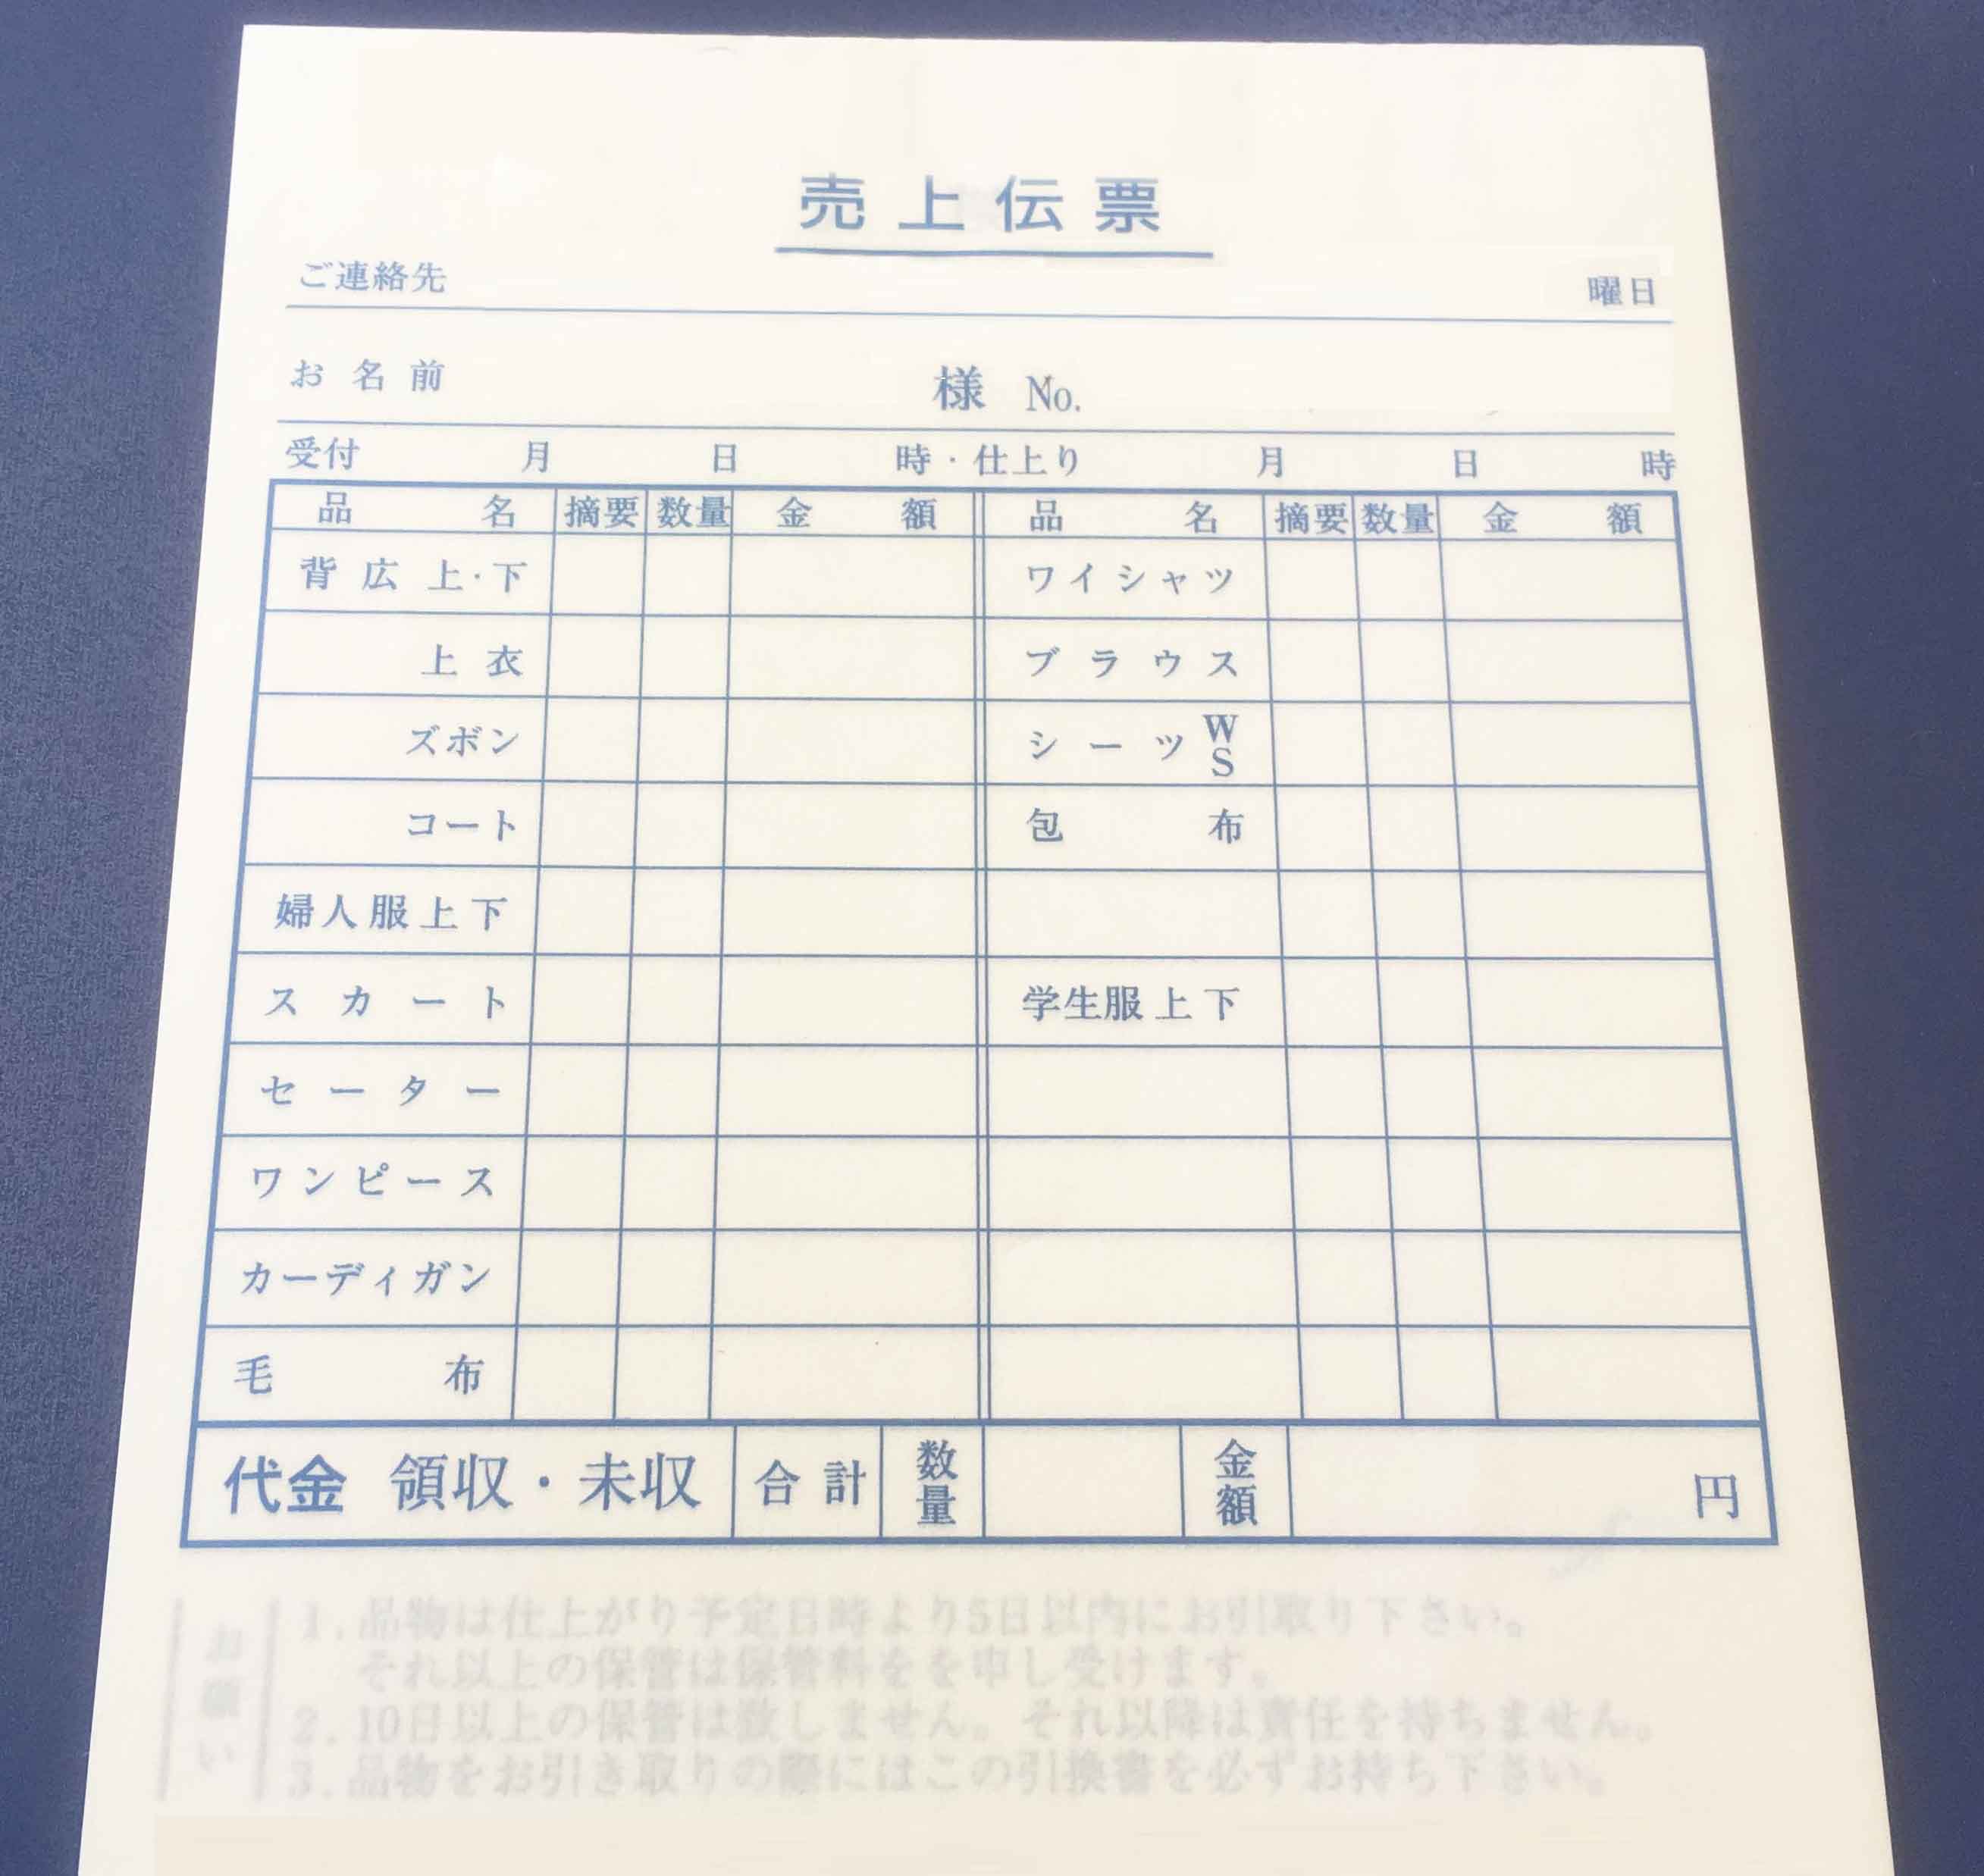 売上伝票
ご連絡先 曜日
お名前 様 No.
受付 月 日 時・仕上り 月 日 時
品名 摘要 数量 金額 品名 摘要 数量 金額
背広上・下 ワイシャツ
上衣 ブラウス
ズボン シーツ W S
コート 包布
婦人服上下
スカート 学生服上下
セーター
ワンピース
カーディガン
毛布
代金 領収・未収 合計 数量 金額 円
お願い
1. 品物は仕上がり予定日時より5日以内にお引取り下さい。
それ以上の保管は保管料をを申し受けます。
2. 10日以上の保管は致しません。それ以降は責任を持ちません。
3. 品物をお引き取りの際にはこの引換書を必ずお持ち下さい。